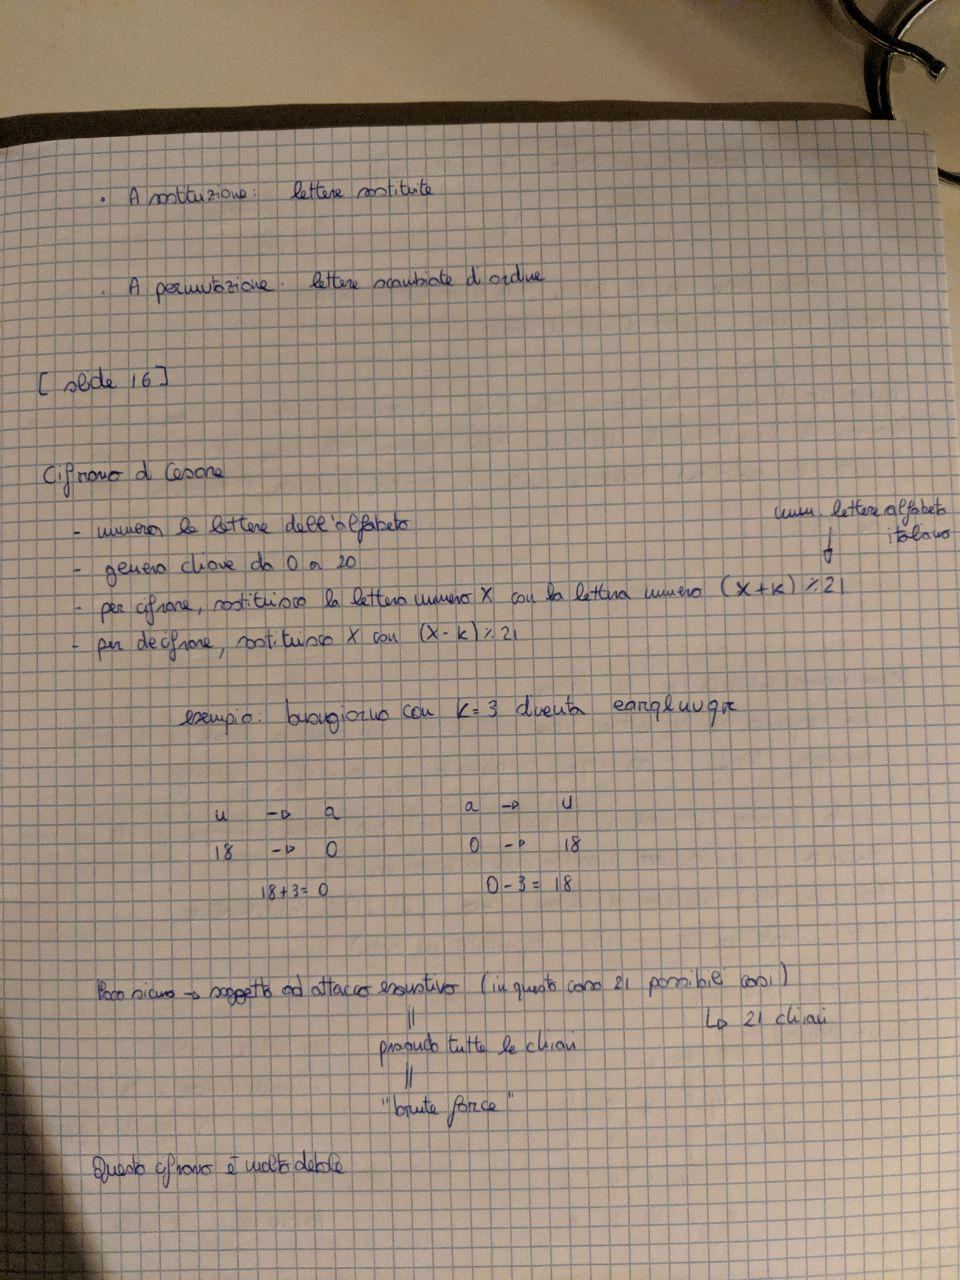 · A sostituzione: lettere sostituite
· A permutazione: lettere scambiate di ordine
[ slide 16 ]
Cifrario di Cesare
num. lettere alfabeto
italiano
- numero le lettere dell'alfabeto
- genero chiave da 0 a 20
- per cifrare, sostituisco la lettera numero X con la lettera numero (X+K) % 21
- per decifrare, sostituisco X con (X-K) % 21
esempio: buongiorno con K=3 diventa
u → a
a → u
18 → 0
0 → 18
18+3= 0
0-3= 18
Poco sicuro → soggetto ad attacco esaustivo (in questo caso 21 possibili casi)
↳ 21 chiavi
||
provando tutte le chiavi
||
"brute force"
Questo cifrario è molto debole